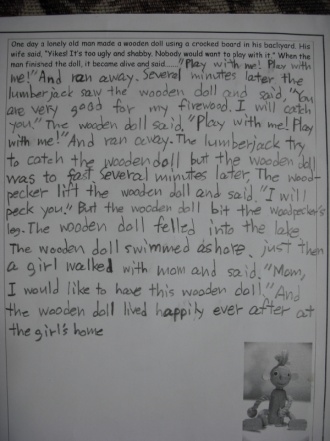 One day a lonely old man made a wooden doll using a crooked board in his backyard. His
wife said, "Yikes! It's too ugly and shabby. Nobody would want to play with it." When the
man finished the doll, it become alive and said......"Play with me! Play with
me!" And ran away. Several minutes later the
lumberjack saw the wooden doll and said, "You
are very good for my firewood. I will catch
you." The wooden doll said, "Play with me! Play
with me!" And ran away. The lumberjack try
to catch the wooden doll but the wooden doll
was to fast. Several minutes later, The wood-
pecker lift the wooden doll and said. "I will
peck you." But the wooden doll bit the woodpecker's
leg. The wooden doll felled into the lake.
The wooden doll swimmed ashore. just then
a girl walked with mom and said. "Mom,
I would like to have this wooden doll." And
the wooden doll lived happily ever after at
the girl's home